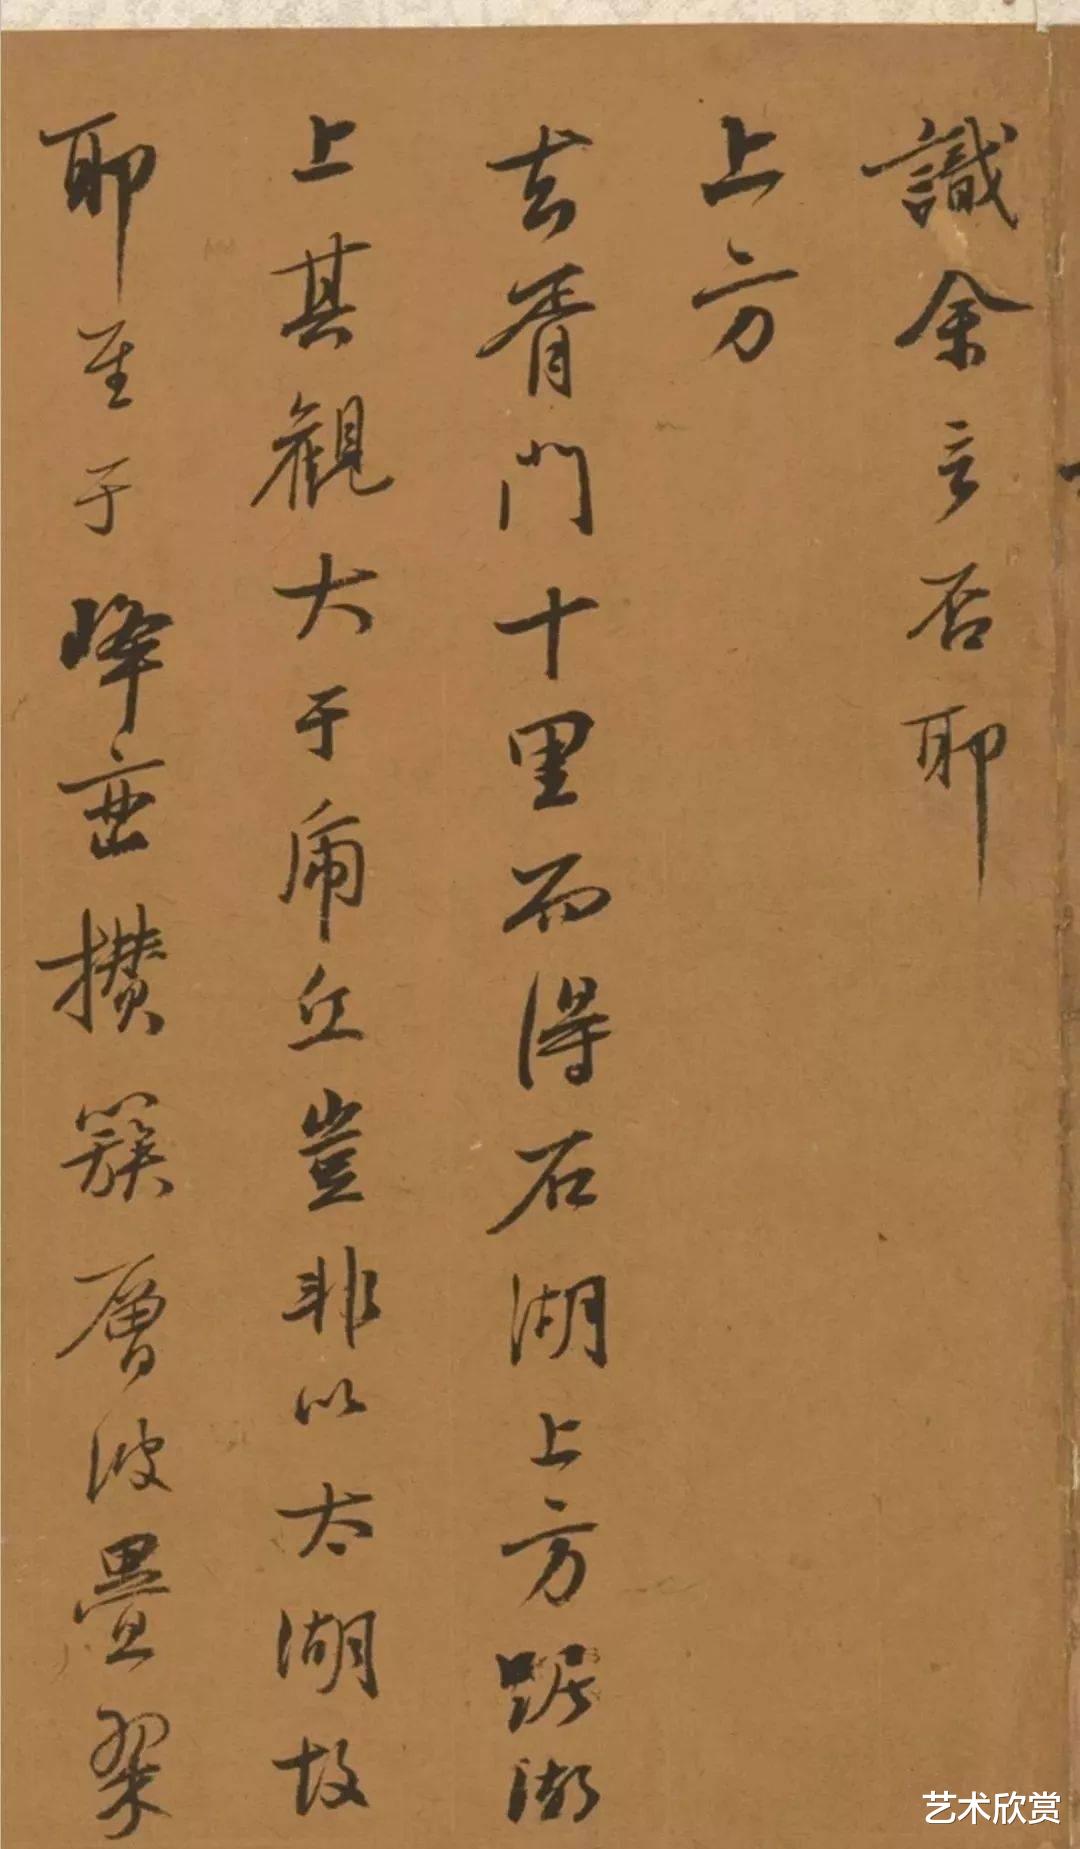 識余言否耶
上方
去胥門十里而得石湖上方踞湖
上其觀大于虎丘豈非以太湖故
耶至于峰巒攅簇層波疊翠
艺术欣赏